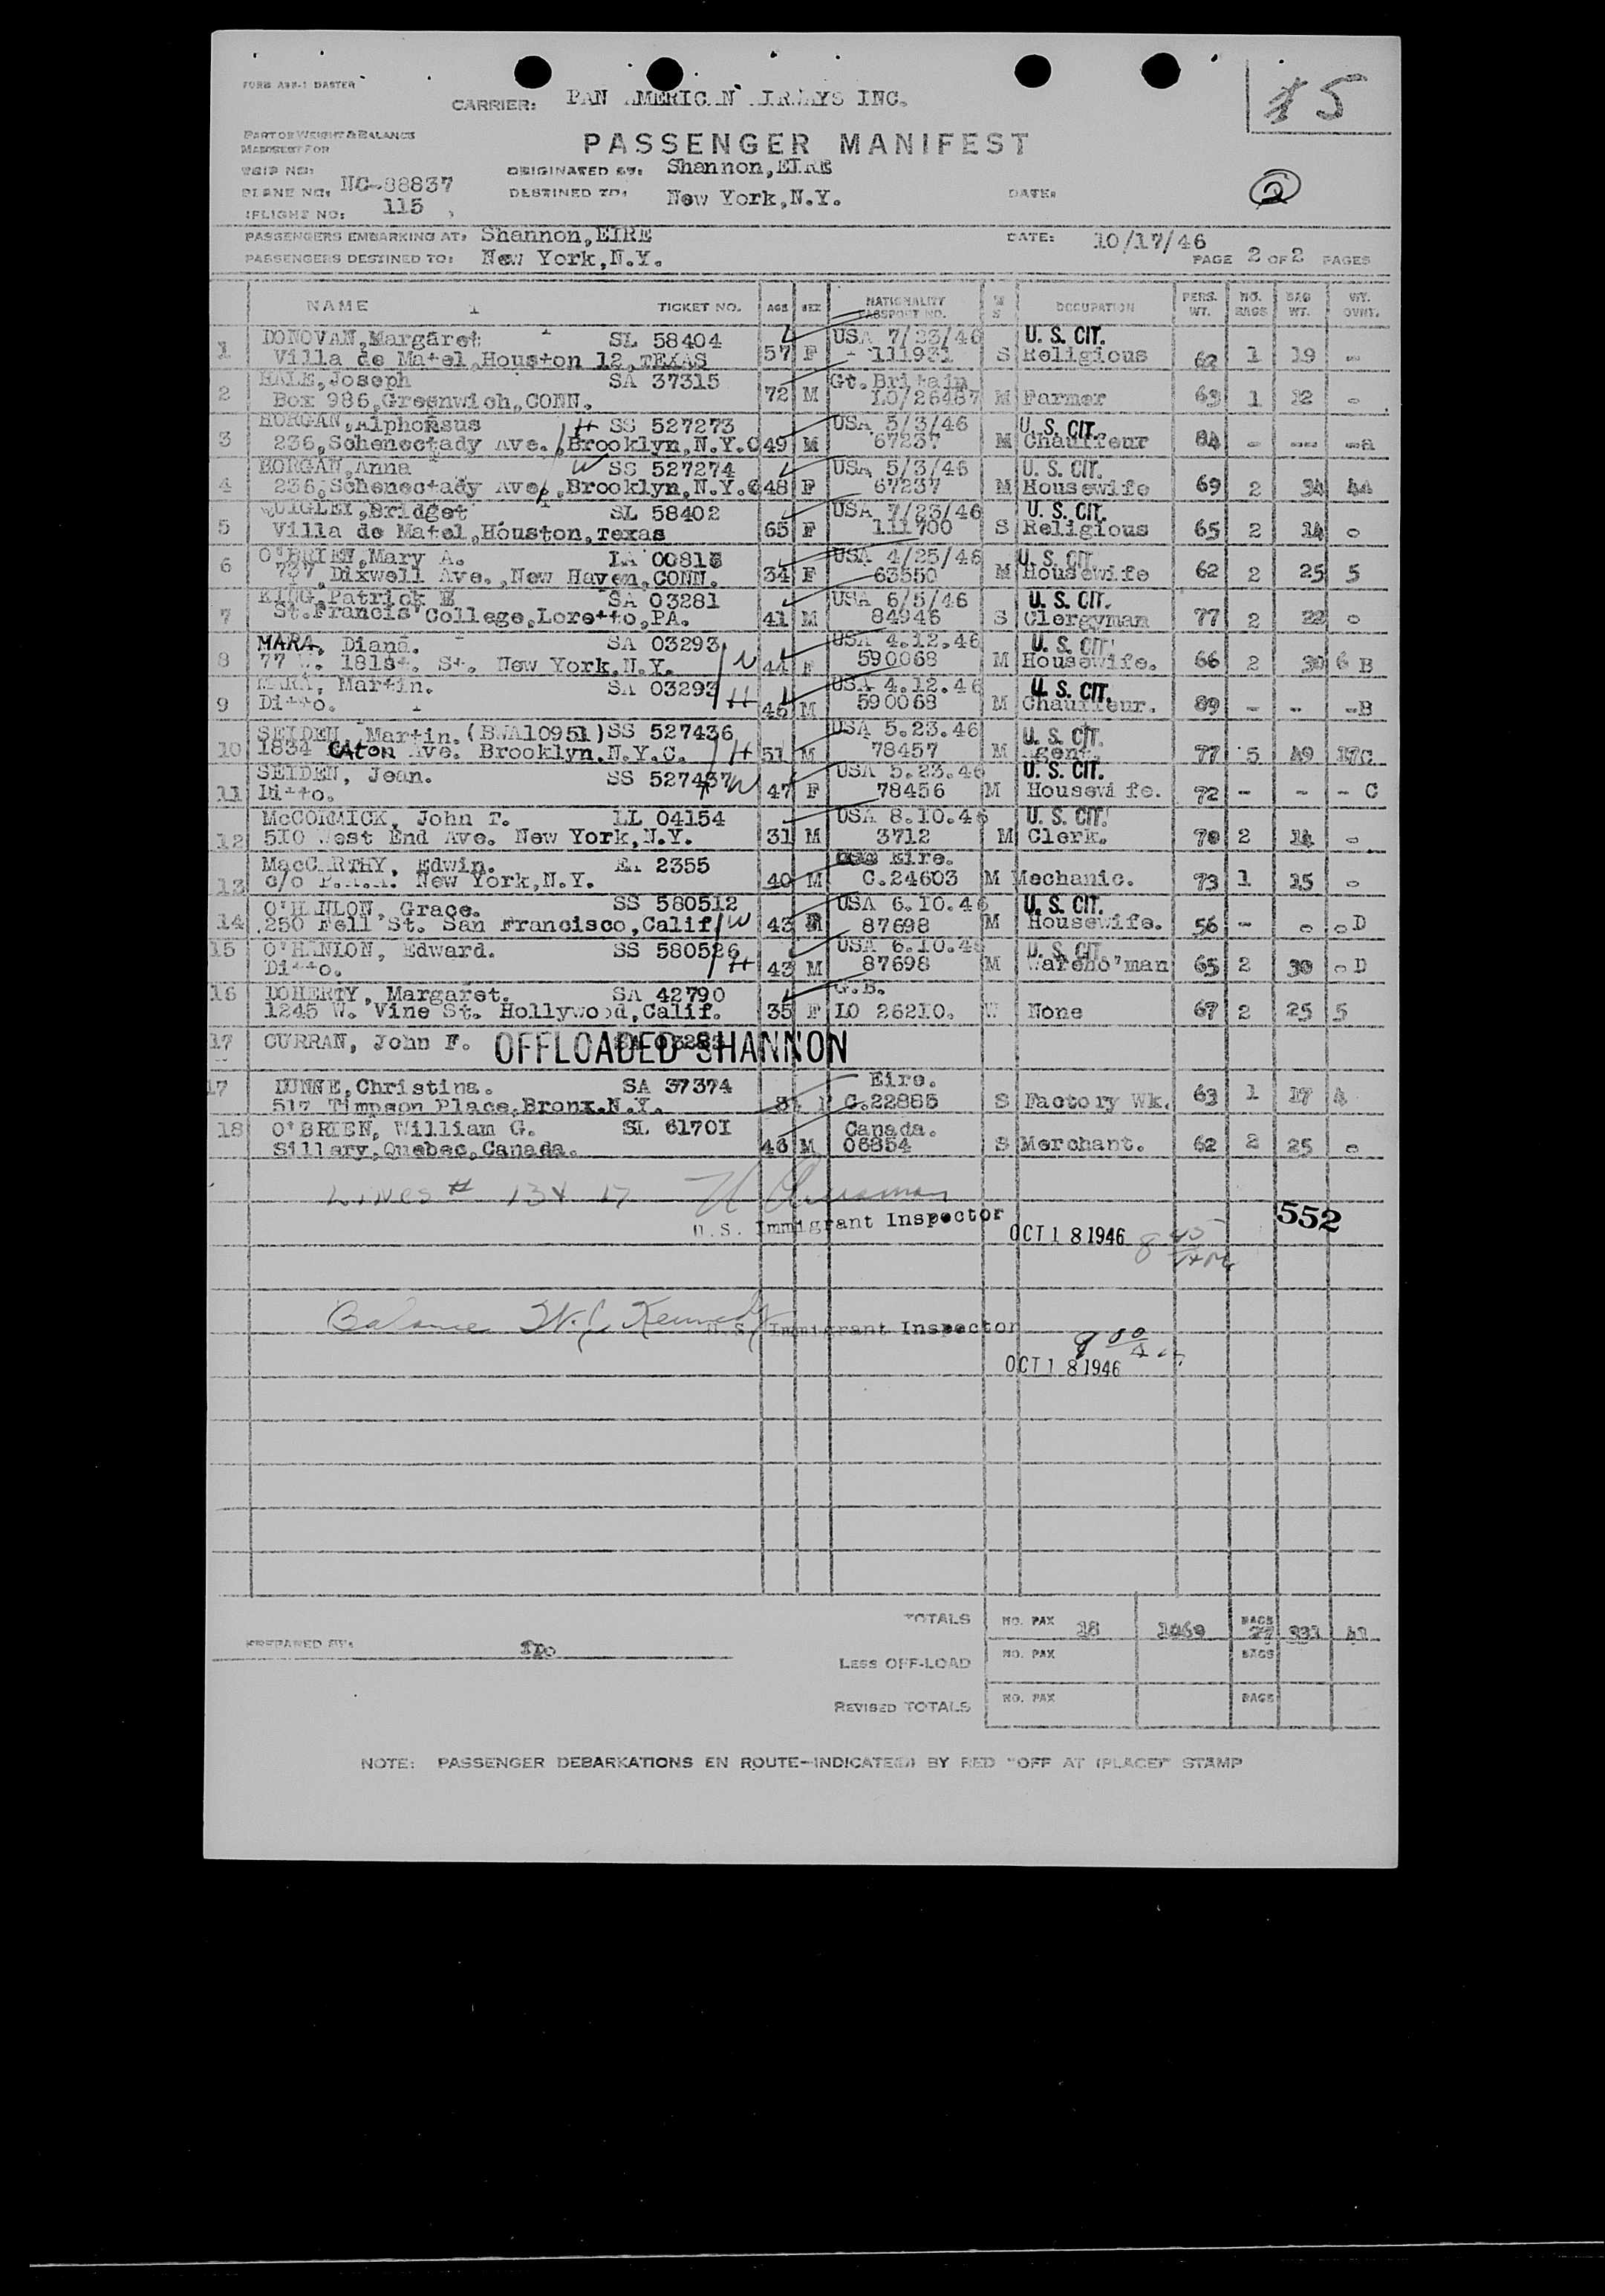 FORM MASTER
15
CARRIER: PAN AMERICAN AIRWAYS INC.
PART OF WEIGHT & BALANCE
MANIFEST FOR
PASSENGER MANIFEST
TRIP NO:
ORIGINATED BY: Shannon, EIRE
PLANE NO: NC-88837
DESTINED TO: New York, N.Y.
DATE:
2
(FLIGHT NO: 115 )
PASSENGERS EMBARKING AT: Shannon, EIRE DATE: 10/17/46
PASSENGERS DESTINED TO: New York, N.Y. PAGE 2 OF 2 PAGES
NAME TICKET NO. AGE SEX NATIONALITY PASSPORT NO. M S OCCUPATION PERS. WT. NO. BAGS BAG WT. WT. OVWT.
1 DONOVAN, Margaret SL 58404 USA 7/23/46 U. S. CIT.
Villa de Matel, Houston 12, TEXAS 57 F - 111931 S Religious 62 1 19 -
2 HALE, Joseph SA 37315 Gt. Britain
Box 986, Greenwich, CONN. 72 M LO/26487 M Farmer 63 1 12 o
3 HORGAN, Alphonsus H SS 527273 USA 5/3/46 U. S. CIT.
236, Schenectady Ave., Brooklyn, N.Y.C 49 M 67237 M Chauffeur 84 - -- -a
4 HORGAN, Anna W SS 527274 USA 5/3/46 U. S. CIT.
236, Schenectady Ave., Brooklyn, N.Y.C 48 F 67237 M Housewife 69 2 34 4A
5 QUIGLEY, Bridget SL 58402 USA 7/23/46 U. S. CIT.
Villa de Matel, Houston, Texas 65 F 111700 S Religious 65 2 14 o
6 O'BRIEN, Mary A. LA USA 4/25/46 U. S. CIT.
737, Dixwell Ave., New Haven, CONN. 34 F 63550 M Housewife 62 2 25 5
7 KING, Patrick E SA 03281 USA 6/5/46 U. S. CIT.
St. Francis College, Loretto, PA. 41 M 84946 S Clergyman 77 2 22 o
8 MARA, Diana. SA 03293 USA 4.12.46 U. S. CIT.
77 W. 181st. St. New York, N.Y. W 44 F 590068 M Housewife. 66 2 30 6 B
9 MARA, Martin. SA 03293 USA 4.12.46 U. S. CIT.
Ditto. H 46 M 590068 M Chauffeur. 89 - -- -B
10 SEIDEN, Martin. (BWA10951) SS 527436 USA 5.23.46 U. S. CIT.
1834 CATON Ave. Brooklyn. N.Y.C. H 51 M 78457 M Agent. 77 5 49 17C
11 SEIDEN, Jean. SS 527437 USA 5.23.46 U. S. CIT.
Ditto. W 47 F 78456 M Housewife. 72 - - - C
12 McCORMICK, John T. LL 04154 USA 8.10.46 U. S. CIT.
510 West End Ave. New York, N.Y. 31 M 3712 M Clerk. 70 2 14 o
13 MacCARTHY, Edwin. EA 2355 Eire.
c/o P.A.A. New York, N.Y. 40 M C.24603 M Mechanic. 73 1 15 o
14 O'HANLON, Grace. SS 580512 USA 6.10.46 U. S. CIT.
250 Fell St. San Francisco, Calif W 43 87698 M Housewife. 56 - o oD
15 O'HANLON, Edward. SS 580526 USA 6.10.46 U. S. CIT.
Ditto. H 43 M 87698 M Wareho'man 65 2 30 oD
16 DOHERTY, Margaret. SA 42790 G.B.
1245 W. Vine St. Hollywood, Calif. 35 F LO 26210. W None 67 2 25 5
17 CURRAN, John F. OFFLOADED SHANNON
17 DUNNE, Christina. SA 37374 Eire.
517 Timpson Place, Bronx. N.Y. F C.22885 S Factory Wk. 63 1 17 4
18 O'BRIEN, William G. SL 61701 Canada.
Sillery, Quebec, Canada. 46 M 06854 S Merchant. 62 2 25 o
Lines # 13 & 17
U.S. Immigrant Inspector
552
OCT 18 1946 8 45
Balance W. J. Kennedy
U.S. Immigrant Inspector
9 00 A
OCT 18 1946
TOTALS NO. PAX 18 1269 BAGS 27 331 41
PREPARED BY:
LESS OFF-LOAD NO. PAX BAGS
REVISED TOTALS NO. PAX BAGS
NOTE: PASSENGER DEBARKATIONS EN ROUTE-INDICATED BY RED "OFF AT (PLACE)" STAMP